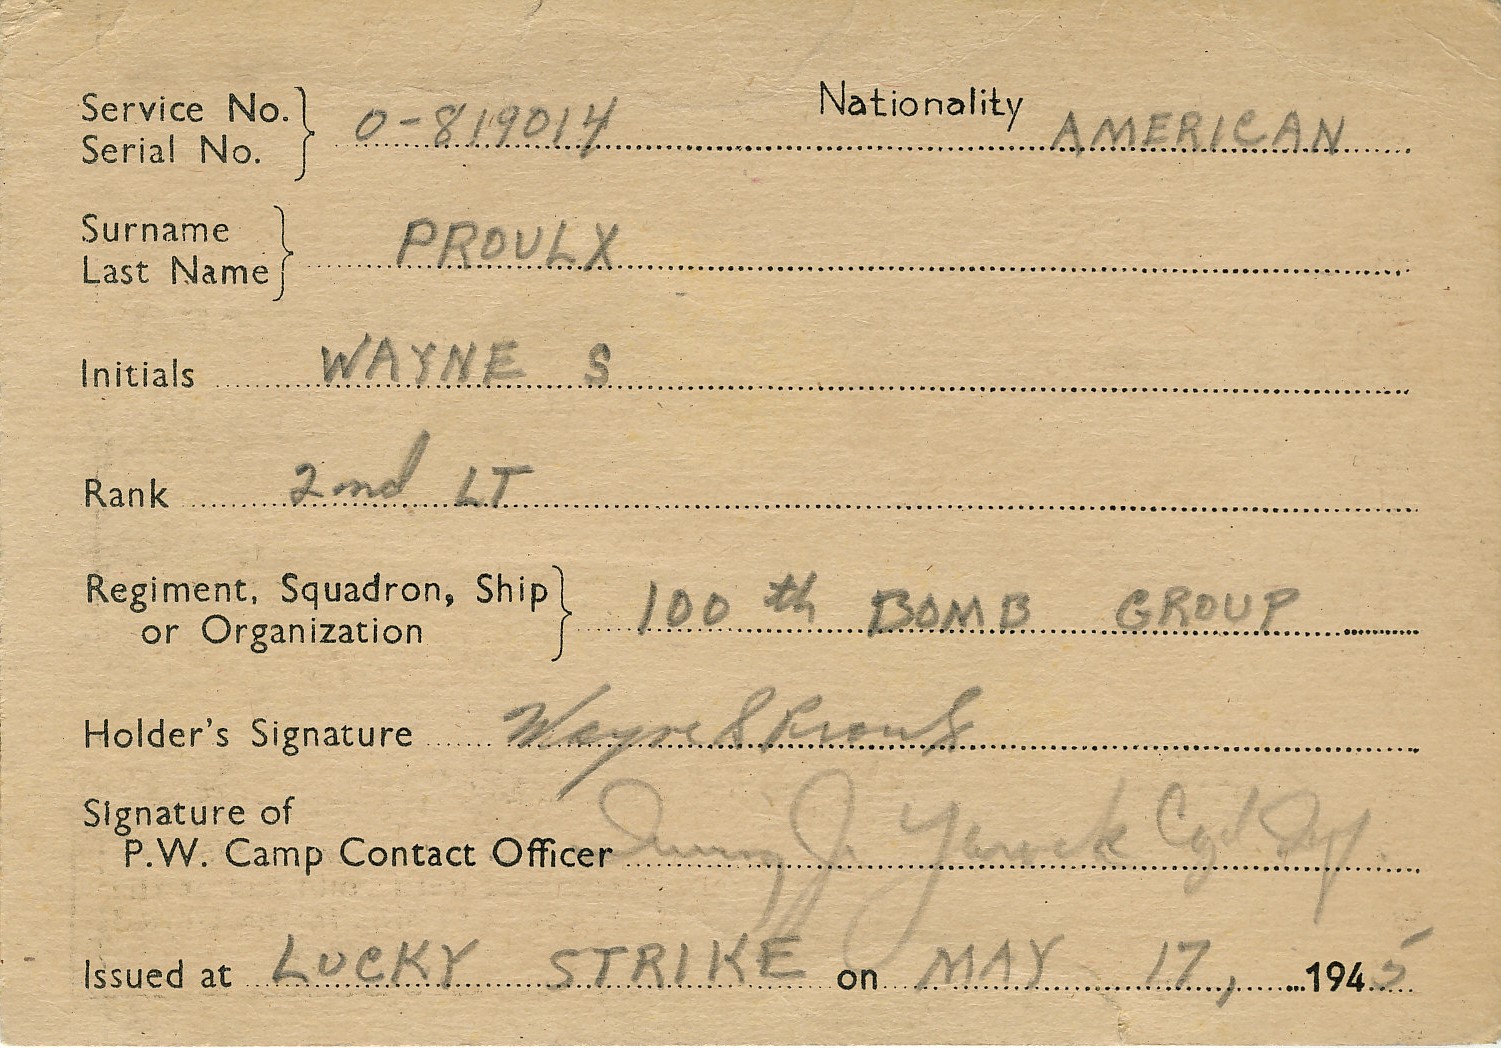 Service No.
Serial No. O-819014 Nationality AMERICAN
Surname
Last Name PROULX
Initials WAYNE S
Rank 2nd LT
Regiment, Squadron, Ship
or Organization 100th BOMB GROUP
Holder's Signature Wayne S Proulx
Signature of
P.W. Camp Contact Officer J.
Issued at LUCKY STRIKE on MAY 17, 1945